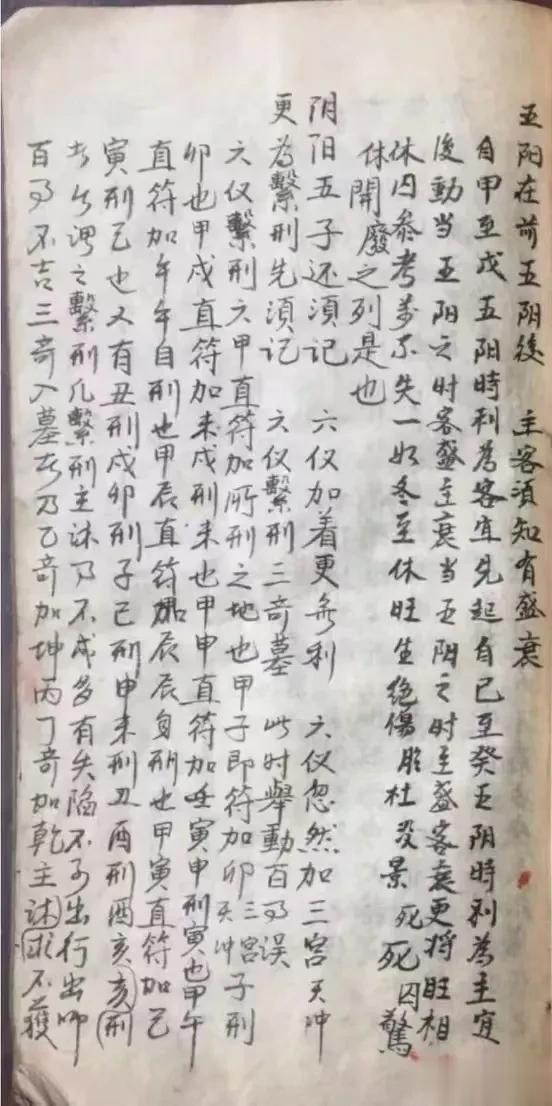 五阳在前五阴後 主客须知有盛衰
自甲至戊五阳時利為客宜先起自己至癸五阴時利為主宜
後動当五阳之时客盛主衰当五阴之时主盛客衰更将旺相
休囚参考万不失一如冬至休旺生绝傷胎杜没景死死囚驚
休開廢之列是也
阴阳五子还須记 六仪加着更無利 六仪忽然加三宫天冲
更為繫刑先須记 六仪繫刑三奇墓 此时舉動百事误
六仪繫刑六甲直符加所刑之地也甲子即符加卯三宫天冲子刑
卯也甲戌直符加未戌刑未也甲申直符加寅申刑寅也甲午
直符加午午自刑也甲辰直符加辰辰自刑也甲寅直符加巳
寅刑巳也又有丑刑戌卯刑子巳刑申未刑丑酉刑酉亥亥刑
者所谓之繫刑凡繫刑主谋事不成多有失陷不可出行出师
百事不吉三奇入墓者乃乙奇加坤丙丁奇加乾主谋求不獲